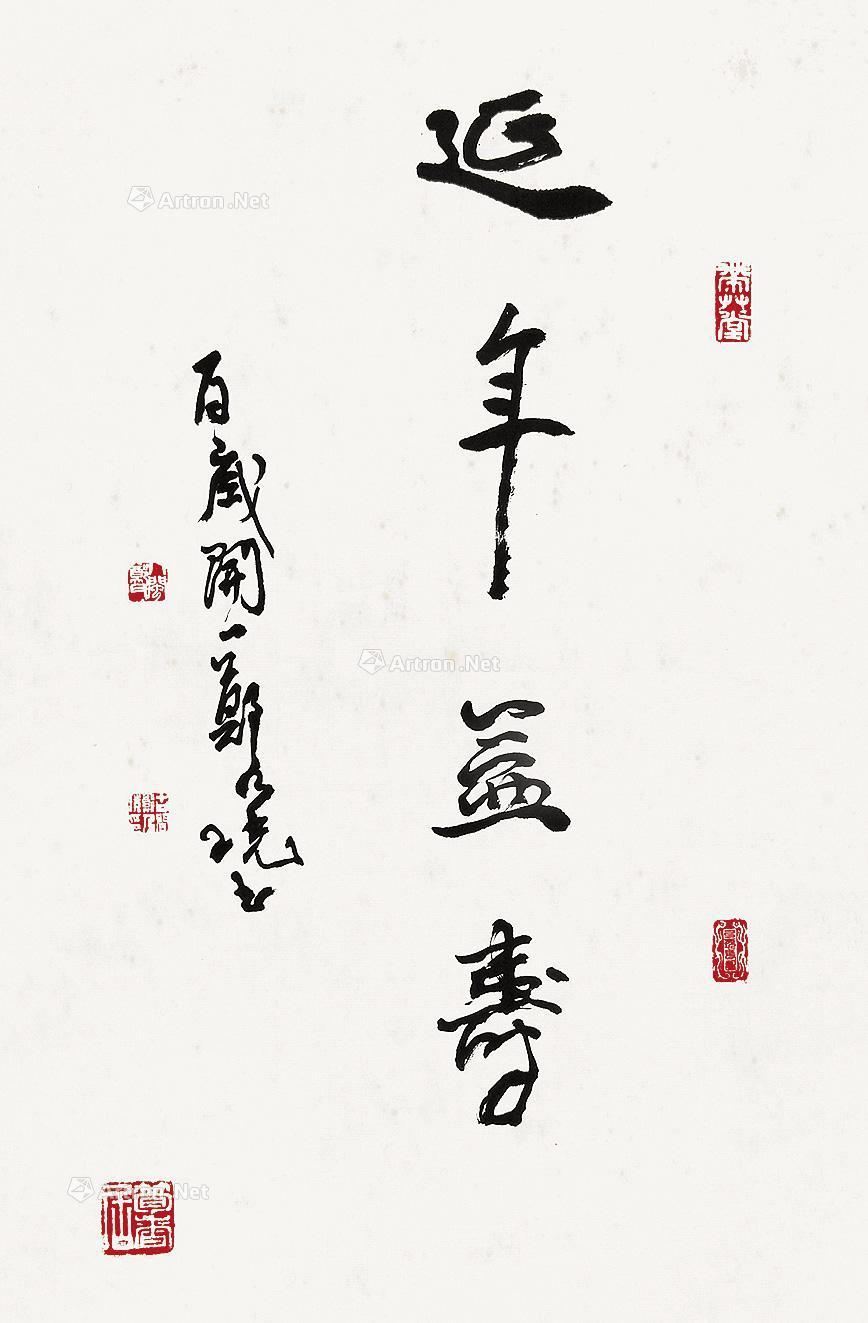 延年益壽
百歲開一鄭乃珖書
Artron.Net
Artron.Net
Artron.Net